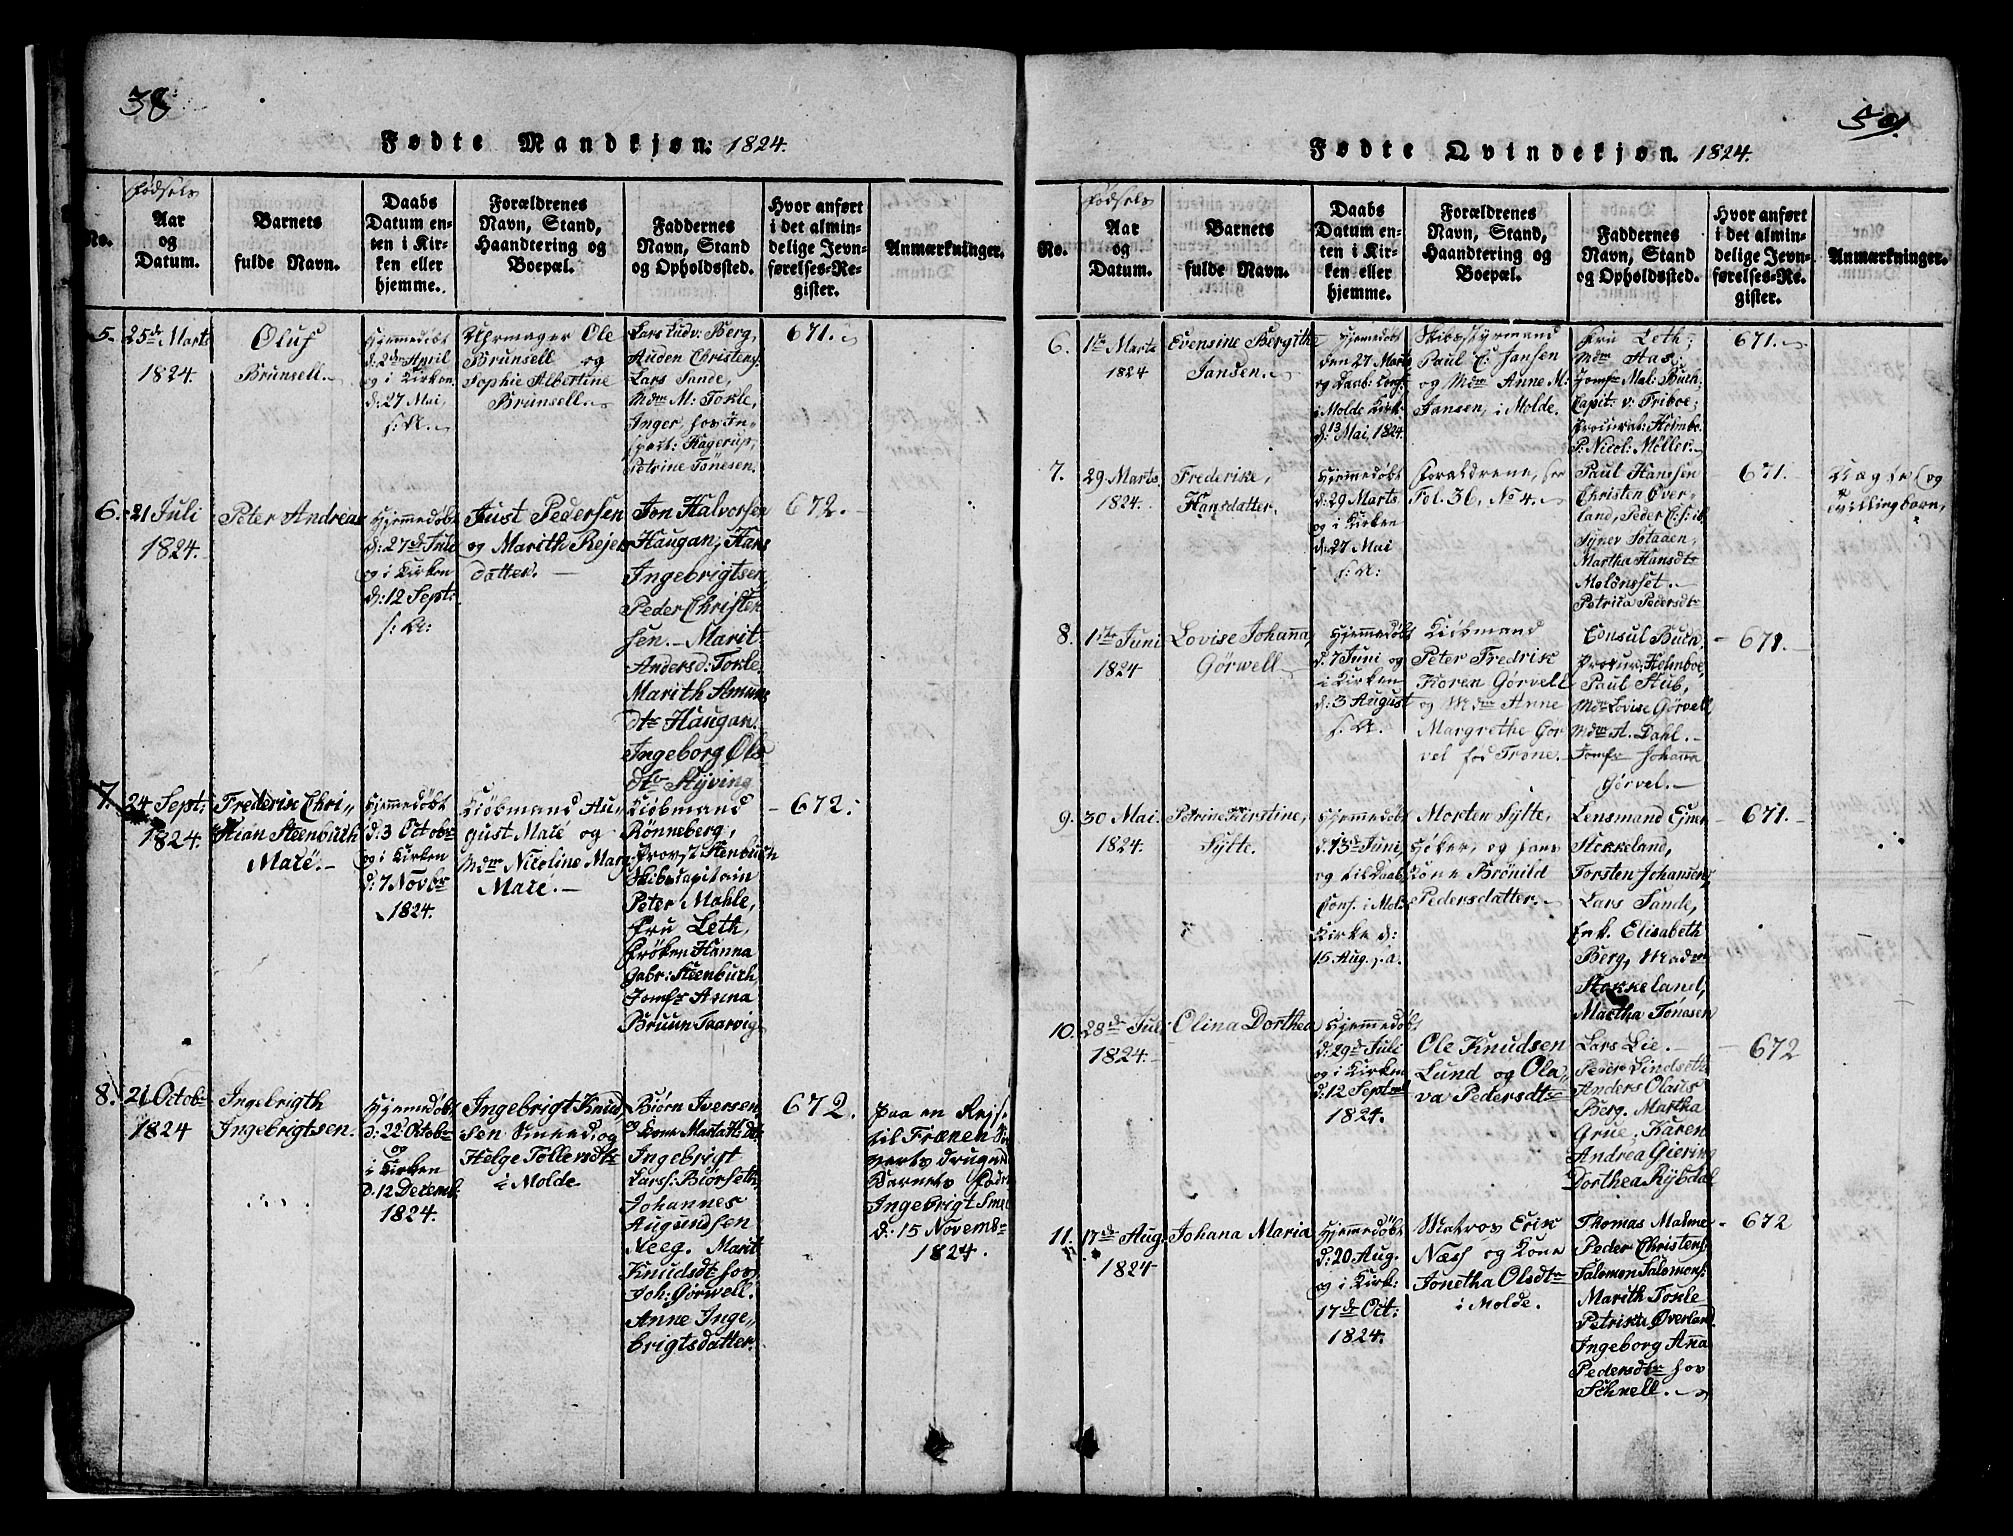 38
Fødte Mandkjøn: 1824.
No.
Fødsels
Aar
og
Datum.
Barnets
fulde Navn.
Daabs
Datum en-
ten i Kir-
ken eller
hjemme.
Forældrenes
Navn, Stand,
Haandtering og
Boepæl.
Faddernes
Navn, Stand
og Opholdssted.
Hvor anført
i det almin-
delige Jevn-
førelses-Re-
gister.
Anmærkninger.
5.
25de Marts
1824.
Oluf
Brunsell.
Hjemmedøbt
d: 2den April
og i Kirken
d: 27 Mai,
s: A.
Uhrmager Ole
Brunsell og
Sophie Albertine
Brunsell.
Lars Ludv: Berg,
Auden Christens:
Lars Sande,
Mdm M: Tokle,
Inger, hos In-
spect: Hagerup,
Petrine Tønesen.
671.
6.
21 Juli
1824.
Peter Andreas
Hjemmedøbt
d: 27de Juli
og i Kirken
d: 12 Sept:
s: A:
Just Pedersen
og Marith Rejers
datter.
Jon Halvorsen
Haugan, Hans
Ingebrigtsen,
Peder Christen
sen. Marit
Andersd: Tokle,
Marith Amunds
dtr Haugan.
Ingeborg Ols
dtr Styving
672.
7.
24 Sept:
1824.
Frederik Chri-
stian Steenbuch
Maré.
Hjemmedøbt
d: 3 Octobr
og i Kirken
d: 7 Novbr
1824.
Kiøbmand Au-
gust Maré og
Mdm Nicoline Marg
Maré.
Kiøbmand
Rønneberg,
Provst Stenbuch
Skibscapitain
Peter Møhle,
Fru Leth,
Frøken Hanna
Gabr: Steenbuch,
Jomfr Anna
Bruun Taarvig
672.
8.
21 Octobr
1824
Ingebrigth
Ingebrigtsen.
Hjemmedøbt
d: 22 Octobr
og
i Kirken
d. 12 Decemb.
1824.
Ingebrigt Knud
sen Smed, og
Helge Tollersdtr
i Molde
Biørn Iversen,
Ingebrigt
Larss: Biørseth,
Johannes
Augundsen
Neeg. Marit
Knudsdtr hos
Joh: Gørwell.
Anne Inge-
brigtsdatter.
672.
Paa en Rejse
til Frænen
Barnets Fader
Ingebrigt Smed
d: 15 Novembr
1824.
Fødte Qvindekjøn. 1824.
No.
Fødsels
Aar
og
Datum.
Barnets
fulde Navn.
Daabs
Datum en-
ten i Kir-
ken eller
hjemme.
Forældrenes
Navn, Stand,
Haandtering og
Boepæl.
Faddernes
Navn, Stand
og Opholdssted.
Hvor anført
i det almin-
delige Jevn-
førelses-Re-
gister.
Anmærkninger.
6.
1ste Marts
1824
Evensine Bergithe
Jansen.
Hjemmedøbt
den 27 Marts
og Daab: Conf:
i Molde Kirk:
d: 13 Mai, 1824.
Skibsstyrmand
Paul C: Jansen
og Mdm Anne M:
Jansen, i Molde.
Fru Leth;
Mdm Aas;
Jomfr Mal: Buch;
Capit: v: Friboe;
Procurat: Holmbo.
P: Nicol: Møller.
671.
7.
29 Marts
1824.
Frederike,
Hansdatter.
Hjemmedøbt
d: 29 Marts
og i Kirken
d: 27 Mai
s: A:
Forældrene, see
Fol. 36, No 4.
Paul Hanssen
Christen Over-
land, Peder
Martha Hansdtr
Moldnsset.
Petrica Pedersdtr
671.
Uægte og
Tvillingbarn.
8.
1ste Juni
1824
Lovise Johanna,
Gørwell
Hjemmedøbt
d: 7 Juni og
i Kirken
d: 3 August
s: A.
Kiøbmand
Peter Fredrik
Koren Gørvell
og Mdm Anne
Margrethe Gør
vel fød Trone.
Consul Buch,
Procur: Holmboe,
Paul Stub,
Mdm Lovise Gørvell
Mdm A. Dahl.
Jomfr Johanna
Gørvel.
671.
9.
30 Mai.
1824.
Petrine Kirstine,
Sylte.
Hjemmedøbt
d: 13de Juni,
og til Daab
Conf. i Mol.
Kirke d:
15 Aug. s. a.
Morten Sylte,
Høker, og hans
Kone Brønild
Pedersdatter.
Lensmand Ejner
Stokkeland,
Torsten Johansen,
Lars Sande,
Enk. Elisabeth
Berg, Madm
Stokkeland,
Martha Tønesen
671.
10.
28de Juli
1824.
Olina Dorthea
Hjemmedøbt
d: 29de Juli
og i Kirken
d: 12 Septmbr
1824.
Ole Knudsen
Lund og Ola-
va Pedersdtr
Lars Lie.
Peder Lindseth
Anders Olaus
Berg. Martha
Grue, Karen
Andrea Giering
Dorthea Rybdal
672
11.
17de Aug.
1824
Johana Maria
Hjemmedøbt
d: 20 Aug.
og i Kirk:
17de Oct:
1824.
Matros Erik
Næss og Kone
Jonetha Olsdtr
i Molde.
Thomas Malme
Peder Christens:
Salomon Salomons:
Marith Tokle
Petrikke Øverland.
Ingeborg Anna
Pedersdtr hos
Schnell.
672